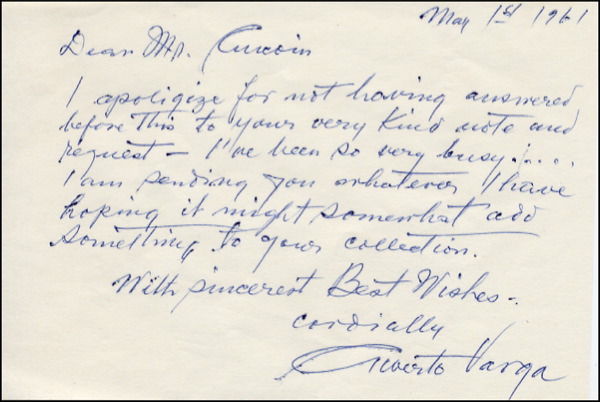 May 1st 1961
Dear Mr.
I apoligize for not having answered
before this to your very kind note and
request – I've been so very busy.....
I am sending you whatever I have
hoping it might somewhat add
something to your collection.
With sincerest Best Wishes –
cordially
Alberto Varga